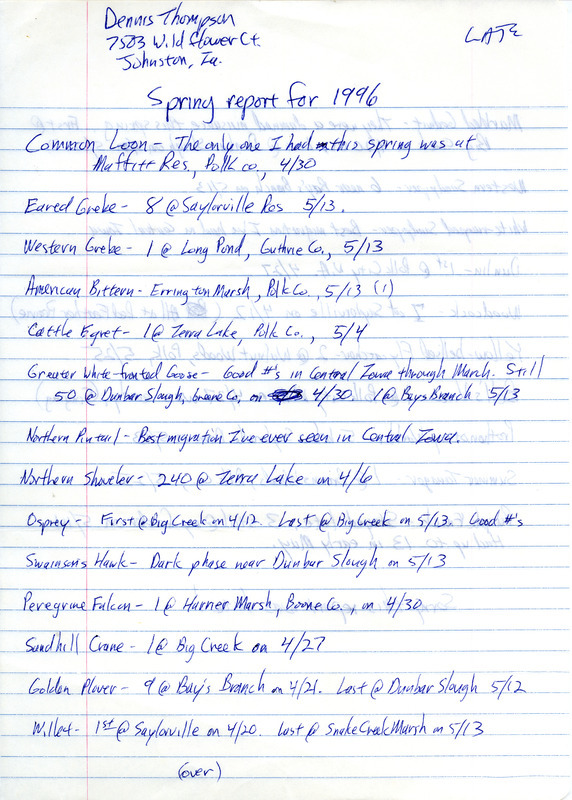 Dennis Thompson
7503 Wild flower Ct.
Johnston, Ia.
LATE
Spring report for 1996
Common Loon - The only one I had this spring was at
Maffitt Res, Polk co, 4/30
Eared Grebe - 8 @ Saylorville Res 5/13.
Western Grebe - 1 @ Long Pond, Guthrie Co., 5/13
American Bittern - Errington Marsh, Polk Co., 5/13 (1)
Cattle Egret - 1 @ Terra Lake, Polk Co., 5/4
Greater White-fronted Goose - Good #'s in Central Iowa through March. Still
50 @ Dunbar Slough, Greene Co, on 4/30. 1 @ Bays Branch 5/13
Northern Pintail - Best migration I've ever seen in Central Iowa.
Northern Shoveler - 240 @ Terra Lake on 4/6
Osprey - First @ Big Creek on 4/12. Last @ Big Creek on 5/13. Good #'s
Swainsons Hawk - Dark phase near Dunbar Slough on 5/13
Peregrine Falcon - 1 @ Harrier Marsh, Boone Co., on 4/30
Sandhill Crane - 1 @ Big Creek on 4/27
Golden Plover - 9 @ Bay's Branch on 4/21. Last @ Dunbar Slough 5/12
Willet - 1st @ Saylorville on 4/20. Last @ Snake Creek Marsh on 5/13
(over)